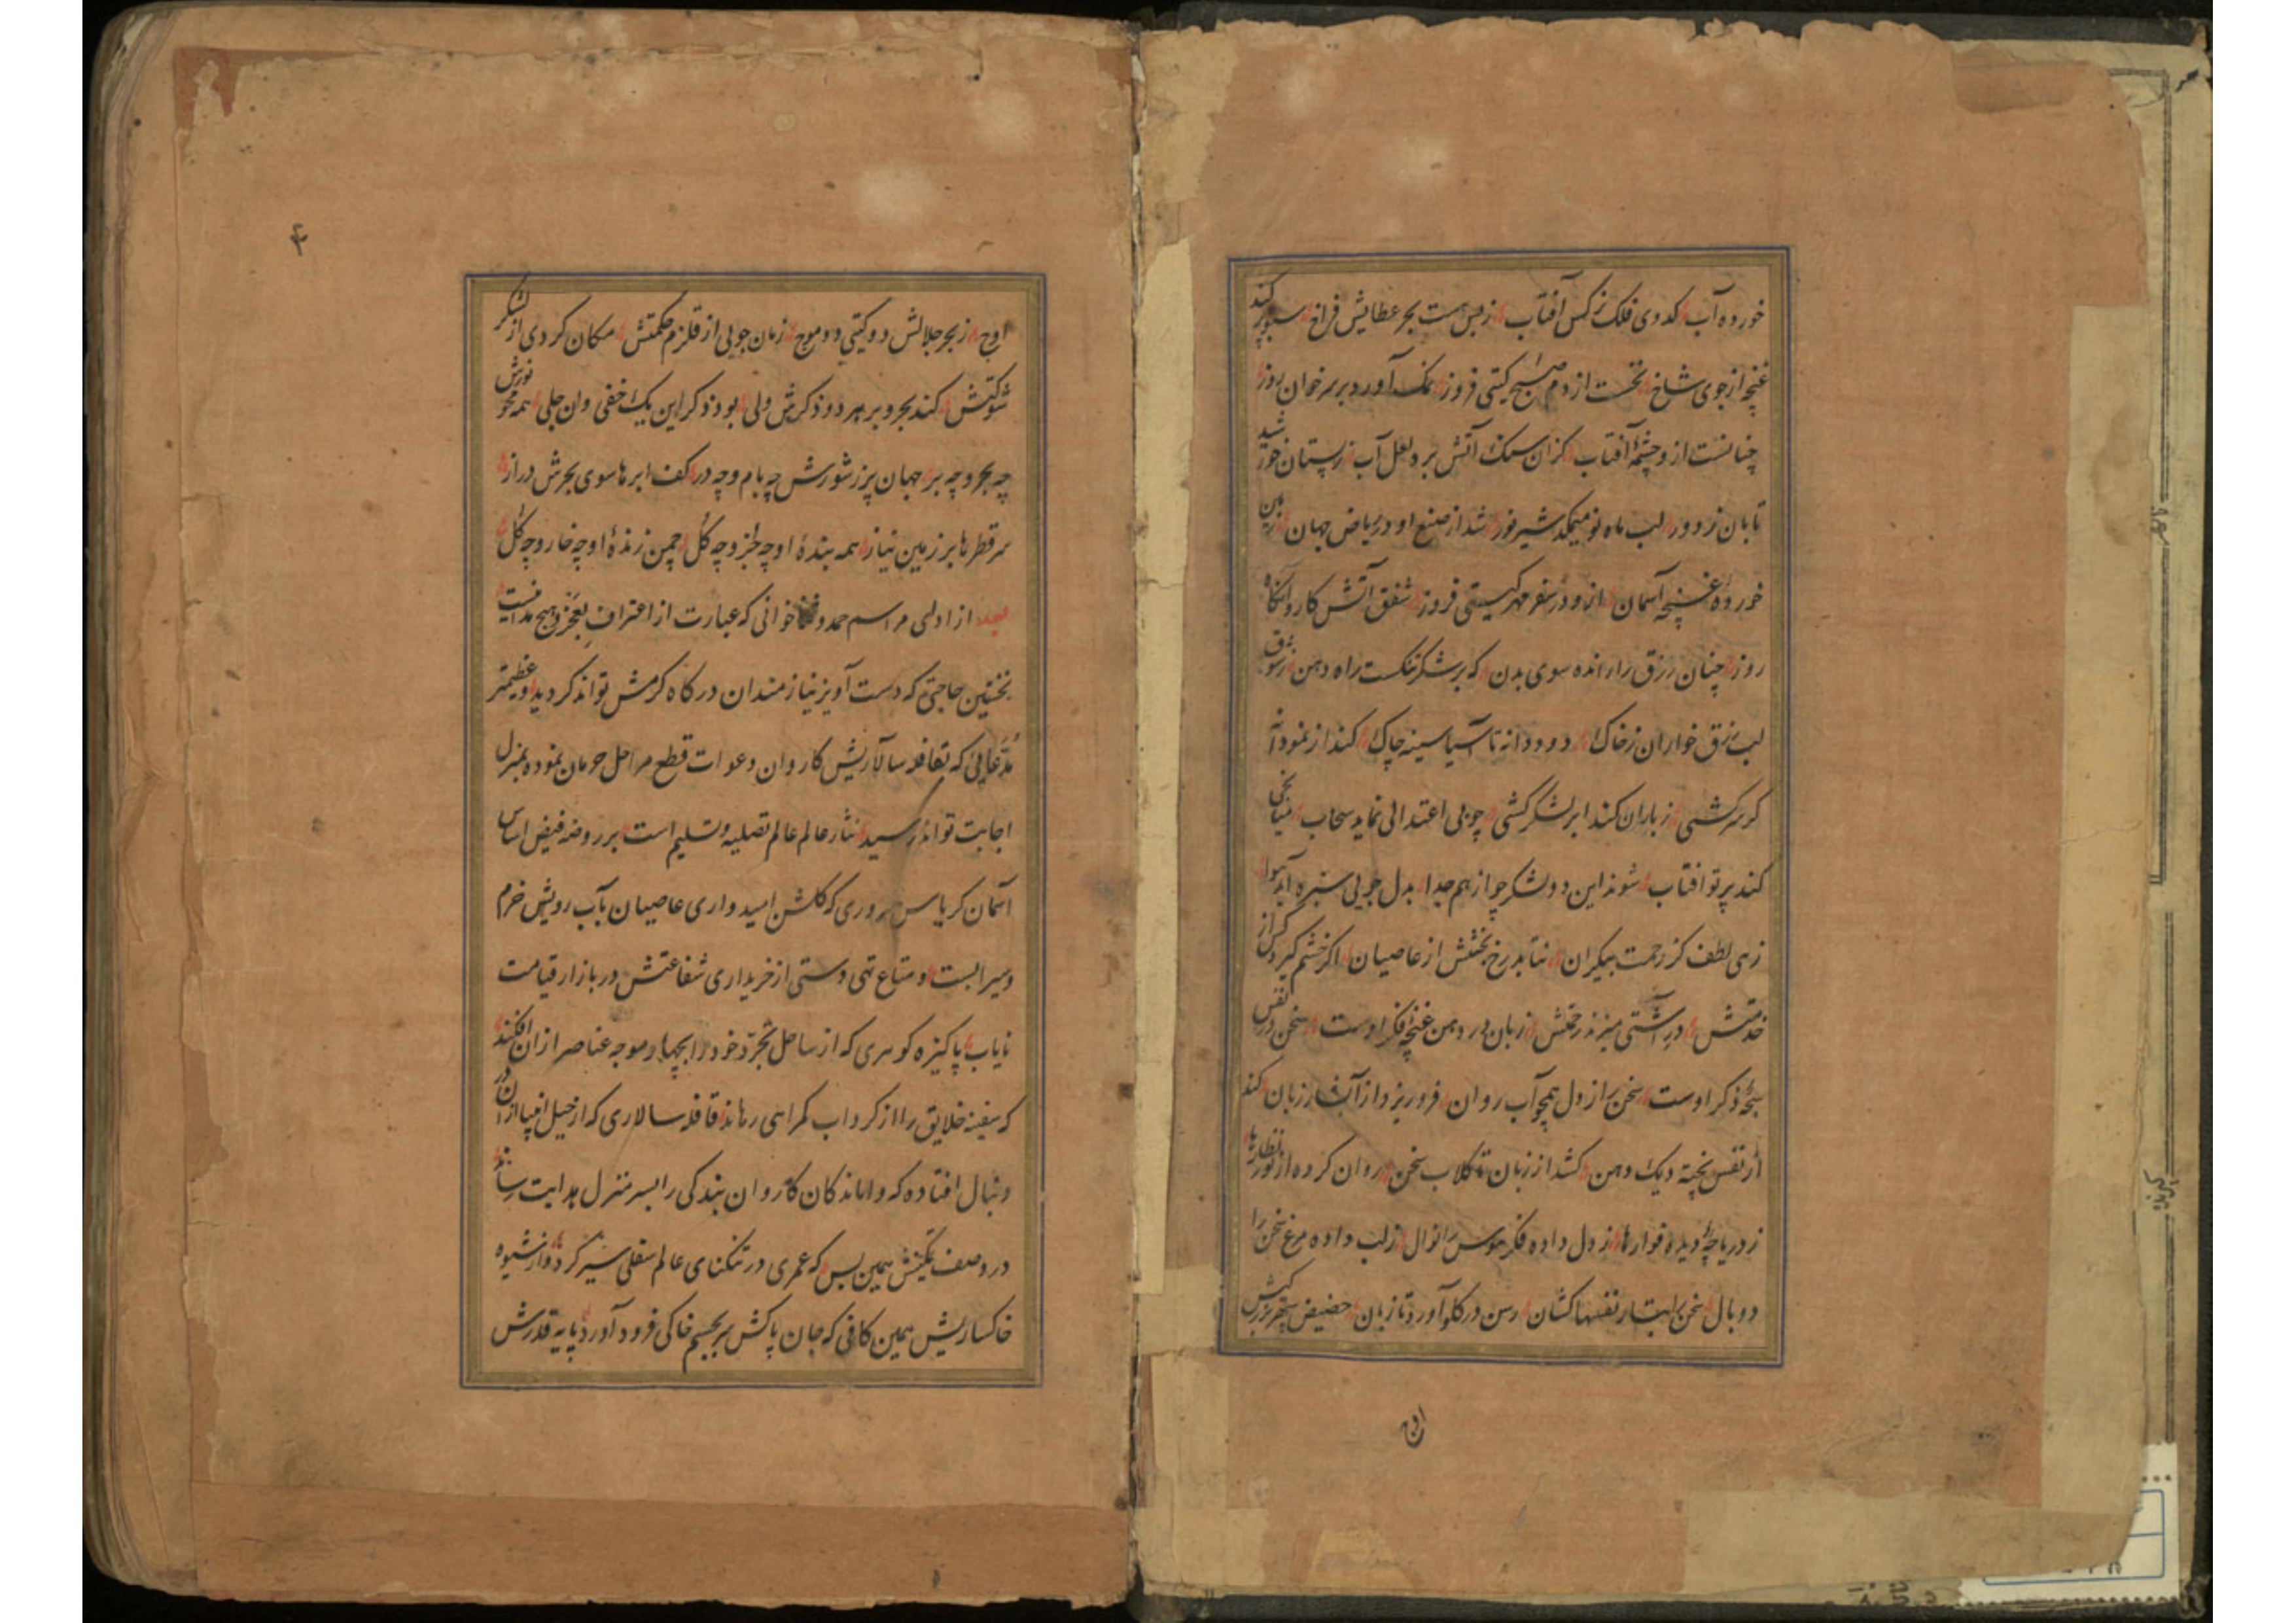 خورده آب کدوی فلک نرگس آفتاب زبس هست بحر عطایش فراخ سبو پر کند
غنچه از جوی شاخ نخست از دم صبح کیتی فروز نمک آورد بر سر خوان روز
چنانست از و چشمهٔ آفتاب کزان سنک آتش برد لعل آب ز پستان خورشید
تابان ز دور لب ماه نو میمکد شیر نور شد از صنع او در ریاض جهان زمین
خورده غنچه آسمان ازو در سفر مهر کیتی فروز شفق آتش کاروانکاه
روز چنان رزق را رانده سوی بدن که بر شکر تنکست راه دهن ز شوق
لب رزق خواران ز خاک دود دانه تا آسیا سینه چاک کند از نمو دانه
کر سرکشی ز باران کند ابر لشکر کشی چو بی اعتدالی نماید سحاب میانجی
کند پرتو افتاب شوند این دو لشکر چو از هم جدا بدل جویی سبزه آید هوا
زهی لطف کز رحمت بیکران نتابد رخ بخشش از عاصیان اکر خشم کیرد کس از
خدمتش در آشتی میزند رحمتش زبان در دهن غنچهٔ فکر اوست سخن در نفس
سبحهٔ ذکر اوست سخن را ز دل همچو آب روان فرو ریزد از آبشار زبان کند
از نفس پخته دیک دهن کشد از زبان تا کلاب سخن روان کرده از نور نظارها
ز دریاچهٔ دیده فوارها ز دل داده فکر هوس را نوال ز لب داده مرغ سخن را
دو بال سخن را بتار نفسها کشان رسن در کلو آورد تا زبان حضیض سپهر برینش
اوج
۴
اوج ز بحر جلالش دو کیتی دو موج زمان جویی از قلزم حکمتش مکان کردی از لشکر
شوکتش کند بحر و بر هر دو ذکرش ولی بود ذکر این یک خفی وان جلی همه محو نورش
چه بحر و چه بر جهان پر ز شورش چه بام و چه در کف ابرها سوی بحرش دراز
سر قطرها بر زمین نیاز همه بندهٔ او چه جزو و چه کل چمن زندهٔ او چه خار و چه کل
بعد از ادای مراسم حمد و ثنا خوانی که عبارت از اعتراف بعجز و هیچ مدانیست
نخستین حاجتی که دست آویز نیازمندان درکاه کرمش تواند کردید و عظیمتر
مدعایی که بقافله سالاریش کاروان دعوات قطع مراحل حرمان نموده بمنزل
اجابت تواند رسید نثار عالم عالم تصلیه و تسلیم است بر روضه فیض اساس
آسمان کریاس سروری که کلشن امیدواری عاصیان بآب رویش خرم
و سیرابست و متاع تهی دستی از خریداری شفاعتش در بازار قیامت
نایاب پاکیزه کوهری که از ساحل تجرد خود را بچهار موجه عناصر ازان افکند
که سفینه خلایق را از کرداب کمراهی رهاند قافله سالاری که از خیل انبیا ازان در
دنبال افتاده که واماندکان کاروان بندکی را بسر منزل هدایت رساند
در وصف تمکینش همین بس که عمری در تنکنای عالم سفلی سیر کرد و از شیوه
خاکساریش همین کافی که جان پاکش بر جسم خاکی فرود آورد پایه قدرش